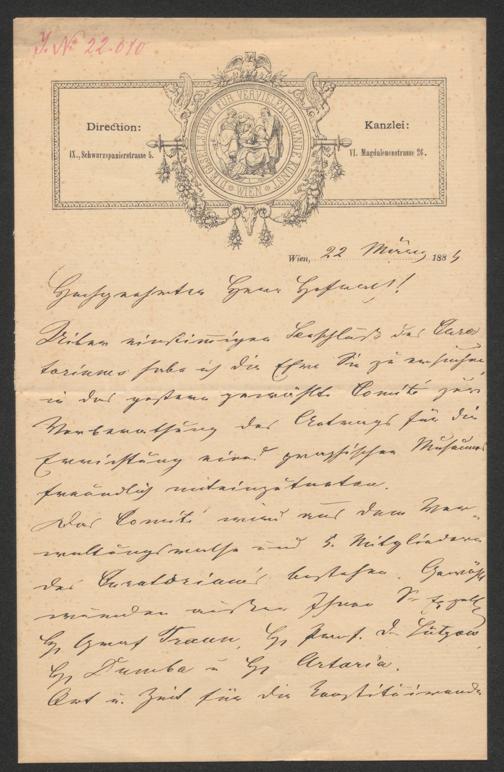 J. № 22.010
GESELLSCHAFT FÜR VERVIELFÄLTIGENDE KUNST
WIEN
Direction:
IX., Schwarzspanierstrasse 5.
Kanzlei:
VI. Magdalenenstrasse 26.
Wien, 22 März 1884
Hochgeehrter Herr Hofrat!
Über einstimmigen Beschluß des Cura-
toriums habe ich die Ehre Sie zu ersuchen
in das gestern gewählte Comité zur
Vorberathung des Antrags für die
Errichtung eines graphischen Museums
freundlich miteinzutreten.
Das Comité wird aus dem Ver-
waltungsrathe und 5 Mitgliedern
des Curatoriums bestehen. Gewählt
wurden außer Ihnen Se Exzell
H. Graf Traun, H. Prof. Dr Lützow,
H. Dumba u H. Artaria.
Ort u. Zeit für die konstituirende